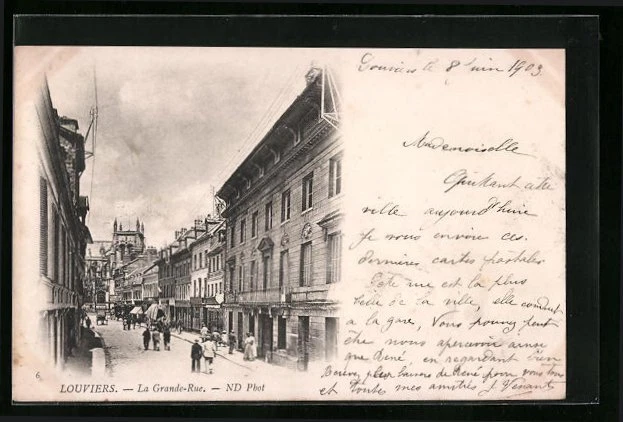 Louviers le 8 Juin 1903
Mademoiselle
Quittant cette
ville aujourd'hui
Je vous envoie ces
dernières cartes postales
Cette rue est la plus
belle de la ville, elle conduit
a la gare, Vous pouvez peut
être nous apercevoir ainsi
que René, en regardant bien
baisers de René pour vous tous
et toutes mes amitiés J. Venant
6 LOUVIERS. — La Grande-Rue. — ND Phot